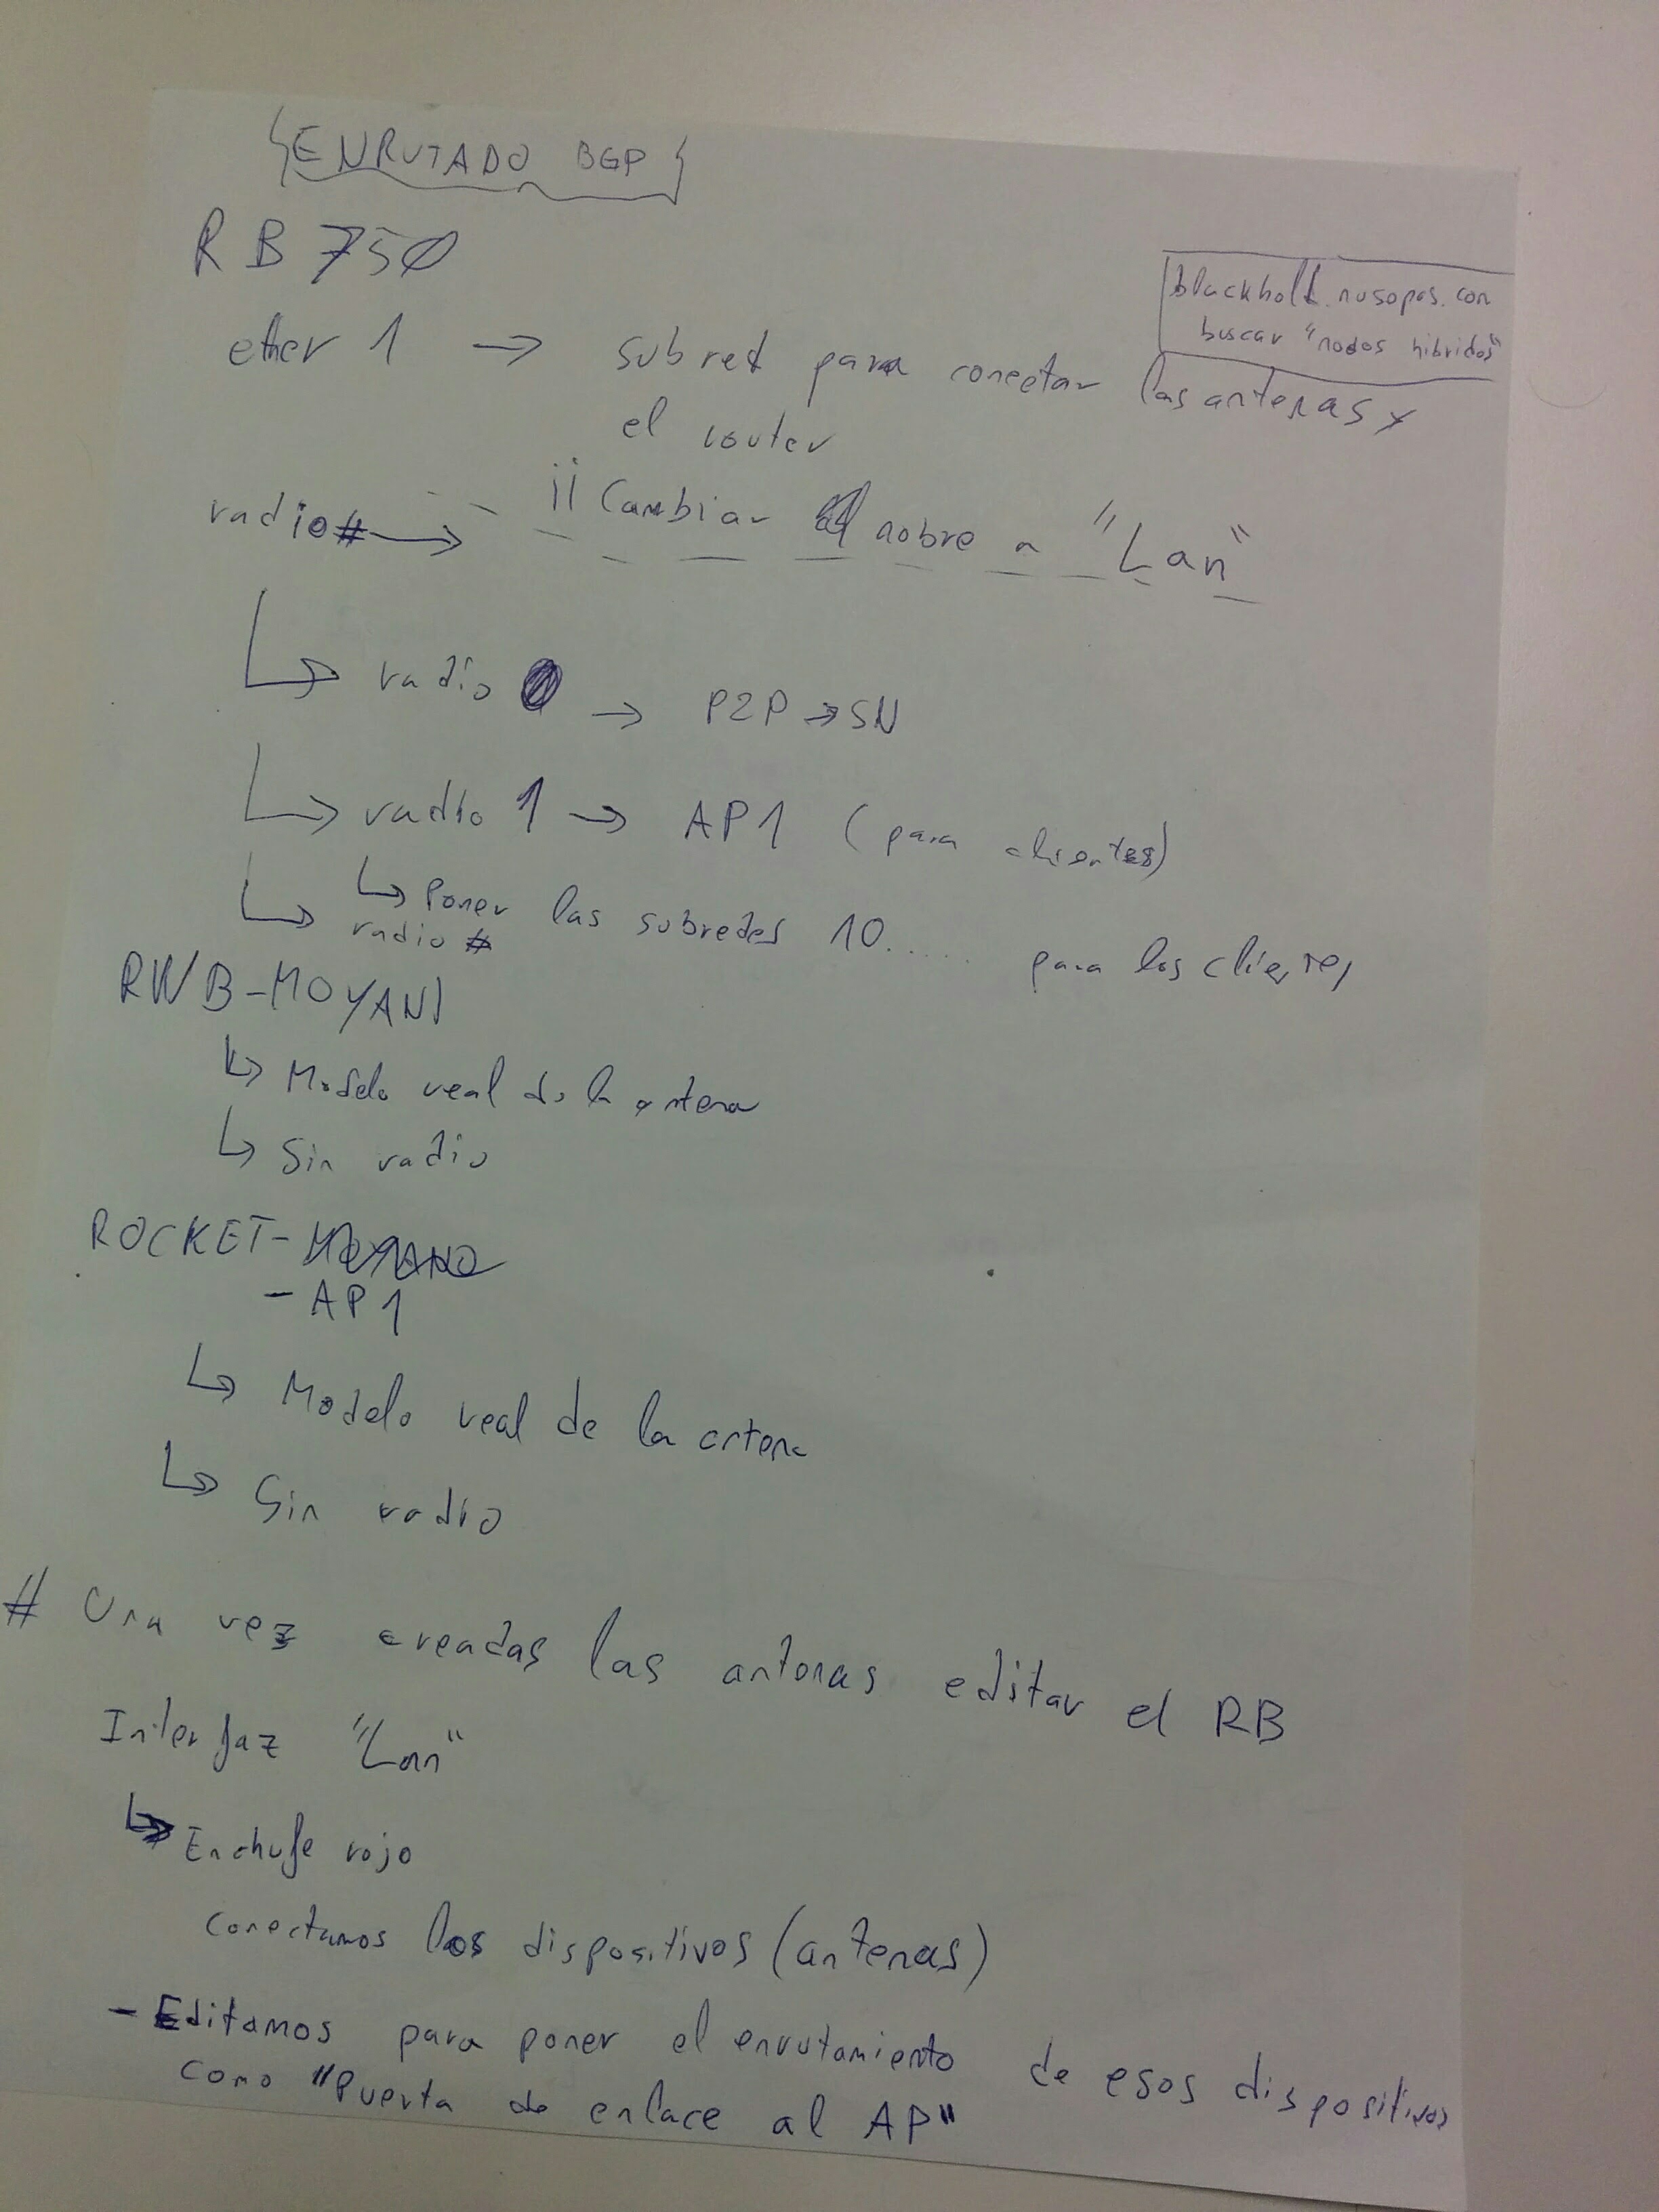 ENRUTADO BGP
RB 750
blackhold.nusepas.com
buscar "nodos hibridos"
ether 1 → subred para conectar las antenas y
el router
radio# → ¡¡ Cambiar el nobre a "Lan"
↳ radio 0 → P2P → SN
↳ radio 1 → AP1 (para clientes)
↳ Poner las subredes 10..... para los clientes
↳ radio #
RWB-MOYANO
↳ Modelo real de la antena
↳ Sin radio
ROCKET-
- AP1
↳ Modelo real de la antena
↳ Sin radio
# Una vez creadas las antenas editar el RB
Interfaz "Lan"
↳ Enchufe rojo
conectamos los dispositivos (antenas)
- Editamos para poner el enrutamiento de esos dispositivos
como "Puerta de enlace al AP"